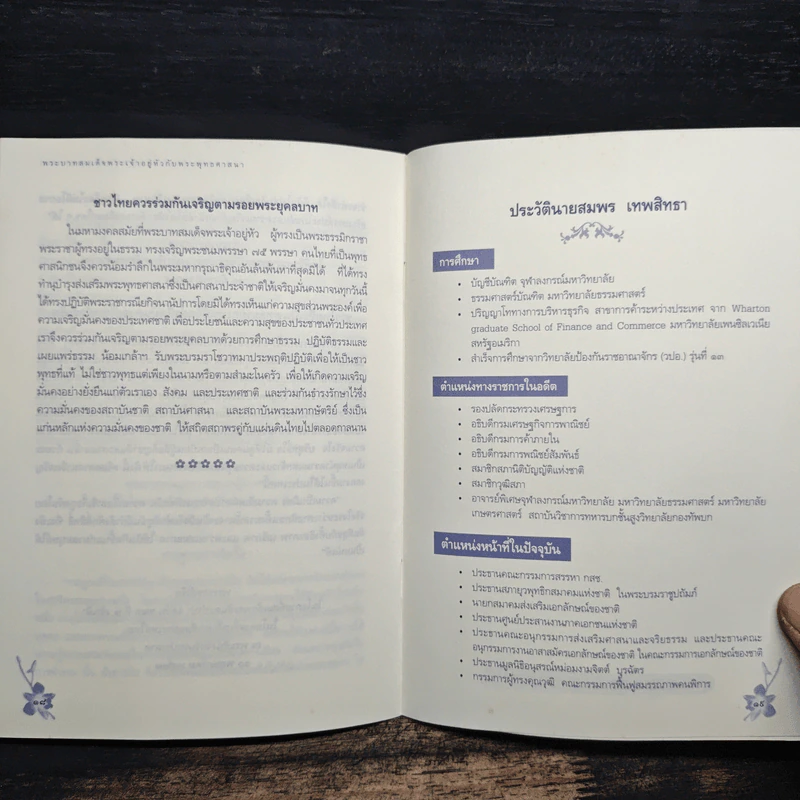 พระบาทสมเด็จพระเจ้าอยู่หัวกับพระพุทธศาสนา
ชาวไทยควรร่วมกันเจริญตามรอยพระยุคลบาท
ในมหามงคลสมัยที่พระบาทสมเด็จพระเจ้าอยู่หัว ผู้ทรงเป็นพระธรรมิกราชา
พระราชาผู้ทรงอยู่ในธรรม ทรงเจริญพระชนมพรรษา ๗๕ พรรษา คนไทยที่เป็นพุทธ
ศาสนิกชนจึงควรน้อมรำลึกในพระมหากรุณาธิคุณอันล้นพ้นหาที่สุดมิได้ ที่ได้ทรง
ทำนุบำรุงส่งเสริมพระพุทธศาสนาซึ่งเป็นศาสนาประจำชาติให้เจริญมั่นคงมาจนทุกวันนี้
ได้ทรงปฏิบัติพระราชกรณียกิจนานัปการโดยมิได้ทรงเห็นแก่ความสุขส่วนพระองค์เพื่อ
ความเจริญมั่นคงของประเทศชาติ เพื่อประโยชน์และความสุขของประชาชนทั่วประเทศ
เราจึงควรร่วมกันเจริญตามรอยพระยุคลบาทด้วยการศึกษาธรรม ปฏิบัติธรรมและ
เผยแพร่ธรรม น้อมเกล้าฯ รับพระบรมราโชวาทมาประพฤติปฏิบัติเพื่อให้เป็นชาว
พุทธที่แท้ ไม่ใช่ชาวพุทธแต่เพียงในนามหรือตามสำมะโนครัว เพื่อให้เกิดความเจริญ
มั่นคงอย่างยั่งยืนแก่ตัวเราเอง สังคม และประเทศชาติ และร่วมกันธำรงรักษาไว้ซึ่ง
ความมั่นคงของสถาบันชาติ สถาบันศาสนา และสถาบันพระมหากษัตริย์ ซึ่งเป็น
แก่นหลักแห่งความมั่นคงของชาติ ให้สถิตสถาพรคู่กับแผ่นดินไทยไปตลอดกาลนาน
๑๘
ประวัตินายสมพร เทพสิทธา
การศึกษา
• บัญชีบัณฑิต จุฬาลงกรณ์มหาวิทยาลัย
• ธรรมศาสตร์บัณฑิต มหาวิทยาลัยธรรมศาสตร์
• ปริญญาโททางการบริหารธุรกิจ สาขาการค้าระหว่างประเทศ จาก Wharton
graduate School of Finance and Commerce มหาวิทยาลัยเพนซิลเวเนีย
สหรัฐอเมริกา
• สำเร็จการศึกษาจากวิทยาลัยป้องกันราชอาณาจักร (วปอ.) รุ่นที่ ๑๓
ตำแหน่งทางราชการในอดีต
• รองปลัดกระทรวงเศรษฐการ
• อธิบดีกรมเศรษฐกิจการพาณิชย์
• อธิบดีกรมการค้าภายใน
• อธิบดีกรมการพณิชย์สัมพันธ์
• สมาชิกสภานิติบัญญัติแห่งชาติ
• สมาชิกวุฒิสภา
• อาจารย์พิเศษจุฬาลงกรณ์มหาวิทยาลัย มหาวิทยาลัยธรรมศาสตร์ มหาวิทยาลัย
เกษตรศาสตร์ สถาบันวิชาการทหารบกชั้นสูงวิทยาลัยกองทัพบก
ตำแหน่งหน้าที่ในปัจจุบัน
• ประธานคณะกรรมการสรรหา กสช.
• ประธานสภายุวพุทธิกสมาคมแห่งชาติ ในพระบรมราชูปถัมภ์
• นายกสมาคมส่งเสริมเอกลักษณ์ของชาติ
• ประธานศูนย์ประสานงานภาคเอกชนแห่งชาติ
• ประธานคณะอนุกรรมการส่งเสริมศาสนาและจริยธรรม และประธานคณะ
อนุกรรมการงานอาสาสมัครเอกลักษณ์ของชาติ ในคณะกรรมการเอกลักษณ์ของชาติ
• ประธานมูลนิธิอนุสรณ์หม่อมงามจิตต์ บุรฉัตร
• กรรมการผู้ทรงคุณวุฒิ คณะกรรมการฟื้นฟูสมรรถภาพคนพิการ
๑๙